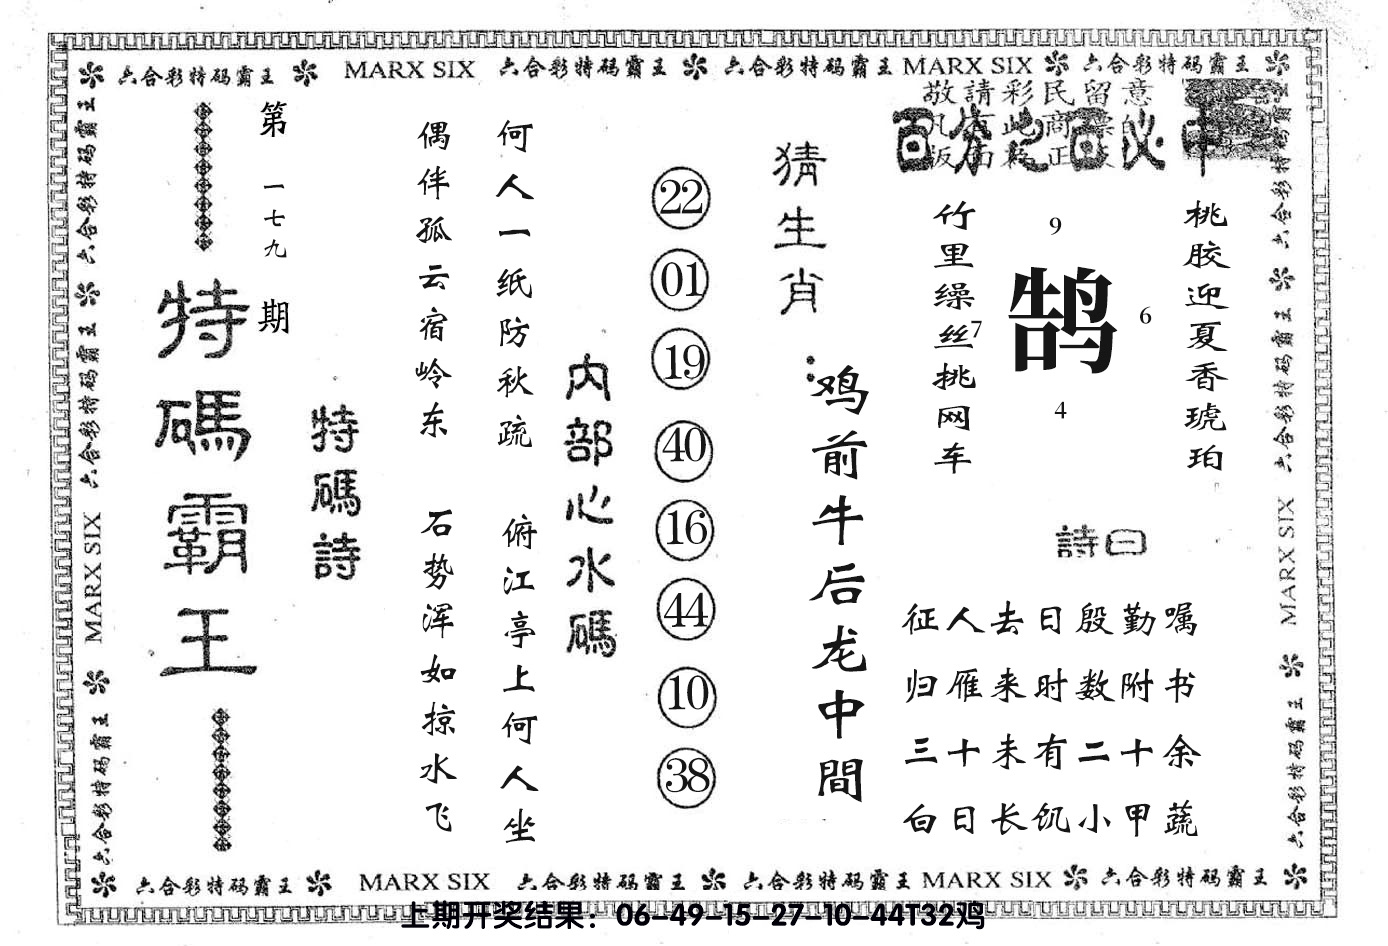 六合彩特码霸王 MARX SIX 六合彩特码霸王 六合彩特码霸王 MARX SIX 六合彩特码霸王
敬請彩民留意
百分之百必中
第一七九期
特碼霸王
特碼詩
偶伴孤云宿岭东
石势浑如掠水飞
何人一纸防秋疏
俯江亭上何人坐
内部心水碼
22
01
19
40
16
44
10
38
猜生肖：
鸡前牛后龙中間
竹里缲丝挑网车
9
7
鹄
6
4
桃胶迎夏香琥珀
詩曰
征人去日殷勤嘱
归雁来时数附书
三十未有二十余
白日长饥小甲蔬
六合彩特码霸王 六合彩特码霸王 MARX SIX 六合彩特码霸王
六合彩特码霸王 六合彩特码霸王 MARX SIX 六合彩特码霸王
六合彩特码霸王 MARX SIX 六合彩特码霸王 六合彩特码霸王 MARX SIX 六合彩特码霸王
上期开奖结果：06-49-15-27-10-44T32鸡